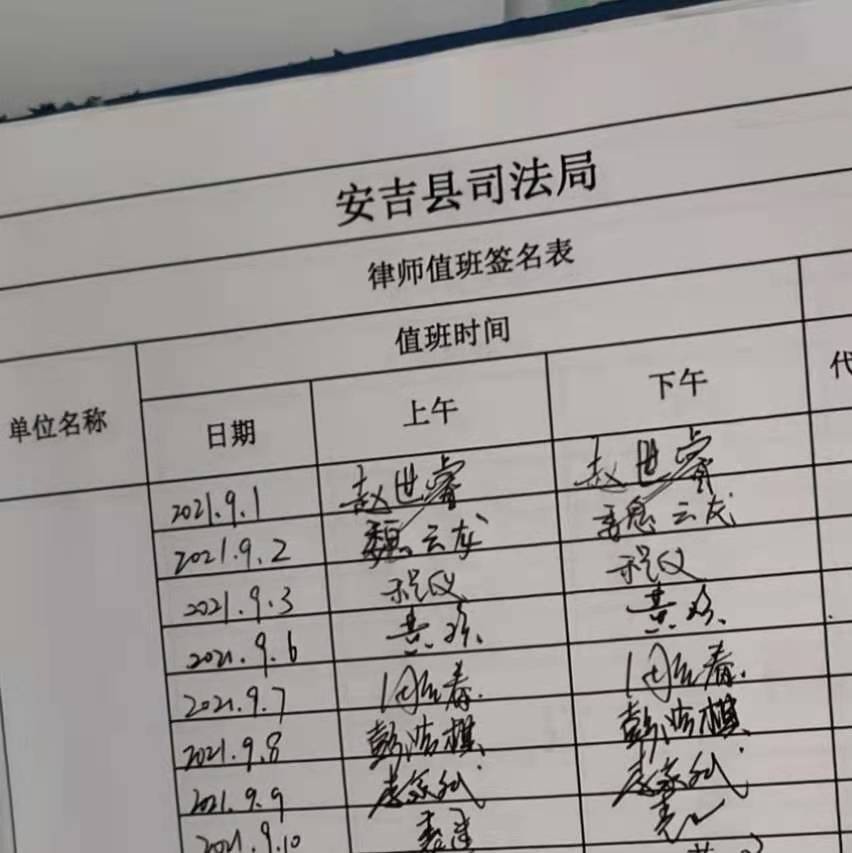 安吉县司法局
律师值班签名表
单位名称 值班时间
日期 上午 下午 代
2021.9.1 赵世睿 赵世睿
2021.9.2 魏云龙 魏云龙
2021.9.3 程仪 程仪
2021.9.6 黄欢 黄欢
2021.9.7 周春 周春
2021.9.8 彭浩棋 彭浩棋
2021.9.9
2021.9.10